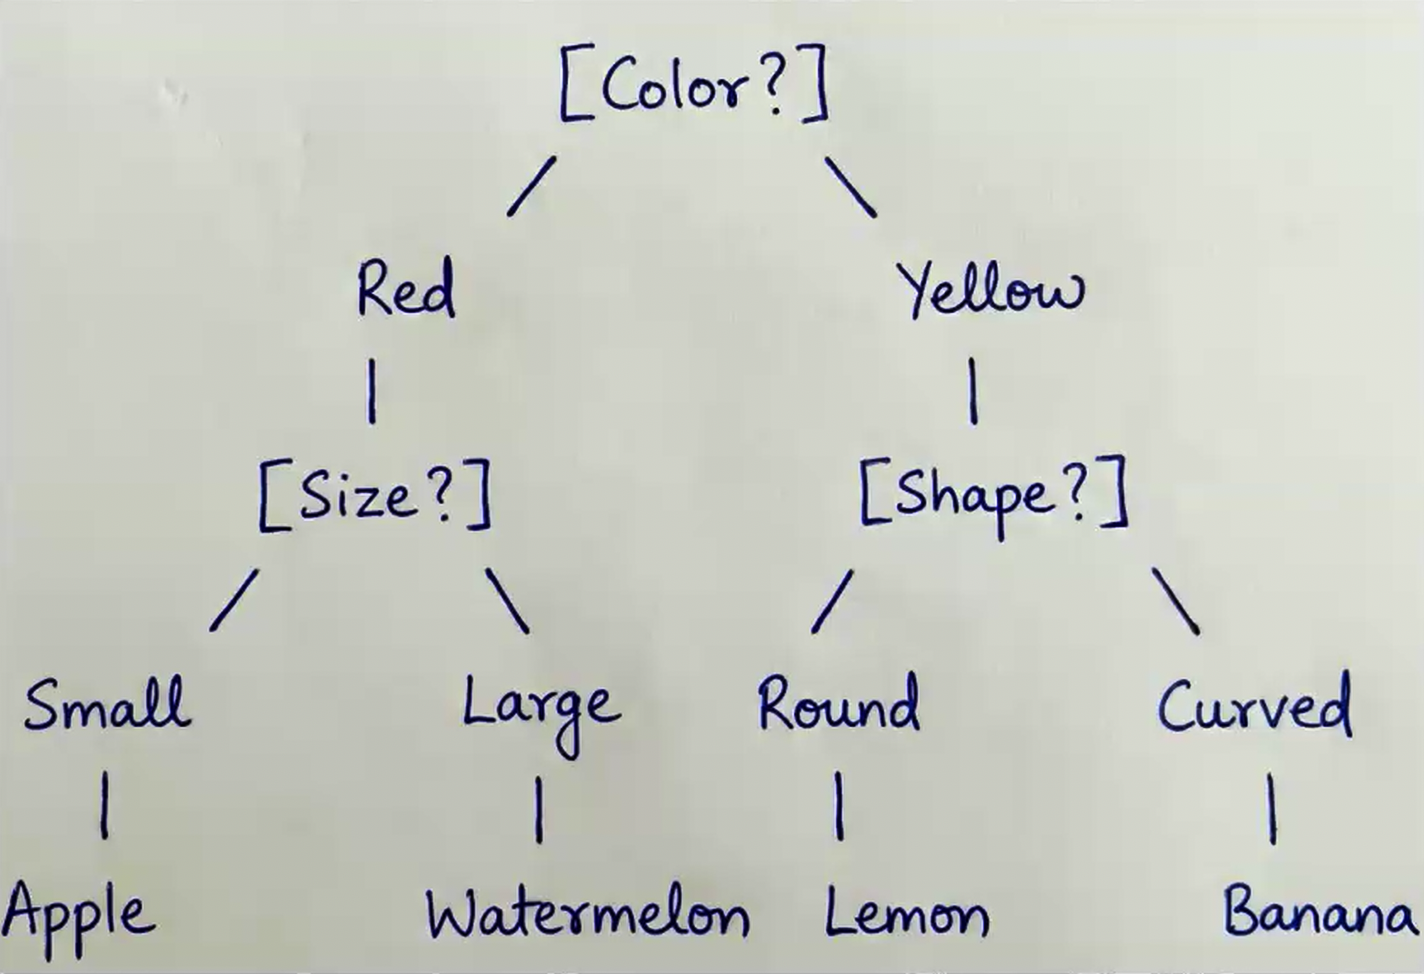 [Color?]
Red Yellow
[Size?] [Shape?]
Small Large Round Curved
Apple Watermelon Lemon Banana